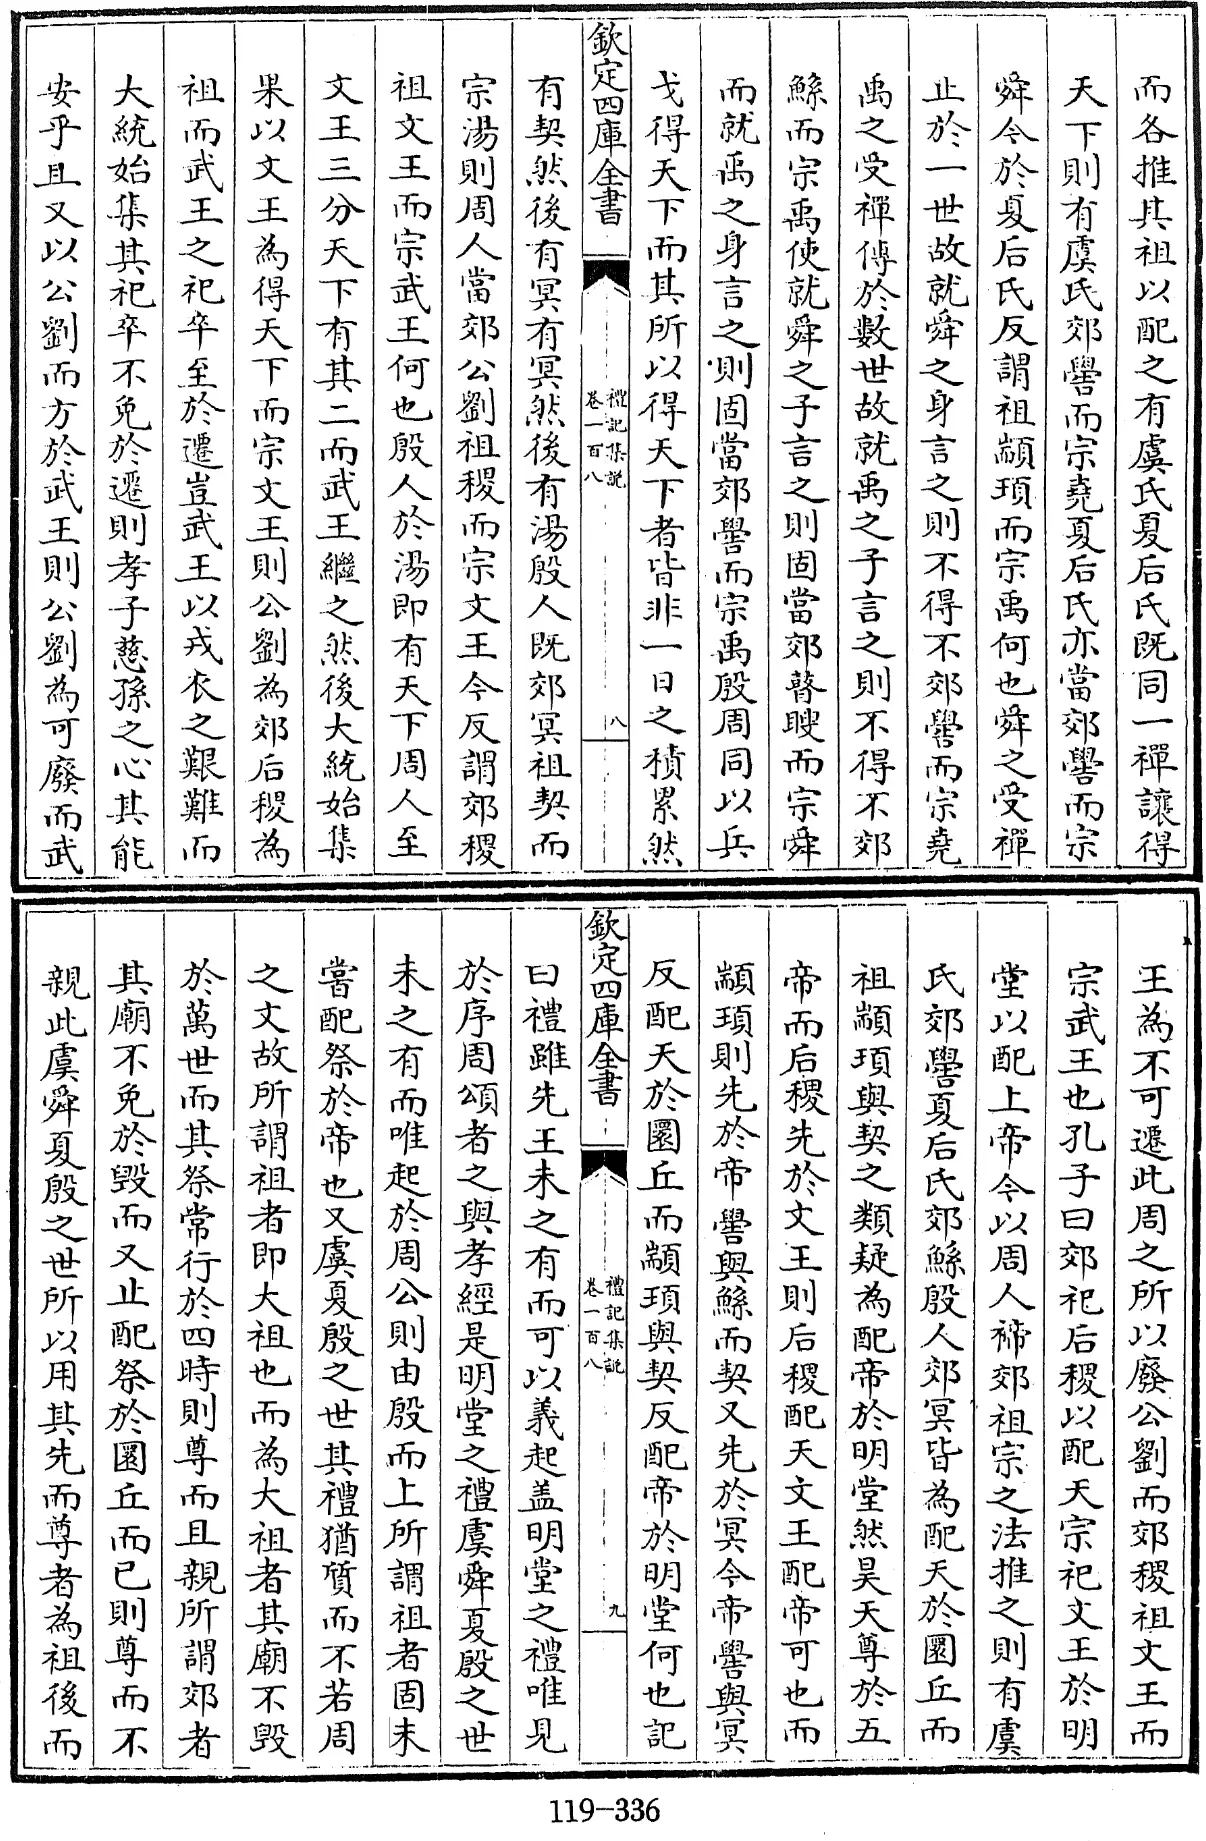 而各推其祖以配之有虞氏夏后氏既同一禪讓得
天下則有虞氏郊嚳而宗堯夏后氏亦當郊嚳而宗
舜今於夏后氏反謂祖顓頊而宗禹何也舜之受禪
止於一世故就舜之身言之則不得不郊嚳而宗堯
禹之受禪傳於數世故就禹之子言之則不得不郊
鯀而宗禹使就舜之子言之則固當郊瞽瞍而宗舜
而就禹之身言之則固當郊嚳而宗禹殷周同以兵
戈得天下而其所以得天下者皆非一日之積累然
欽定四庫全書
禮記集説
卷一百八
八
有契然後有冥有冥然後有湯殷人既郊冥祖契而
宗湯則周人當郊公劉祖稷而宗文王今反謂郊稷
祖文王而宗武王何也殷人於湯即有天下周人至
文王三分天下有其二而武王繼之然後大統始集
果以文王為得天下而宗文王則公劉為郊后稷為
祖而武王之祀卒至於遷豈武王以戎衣之艱難而
大統始集其祀卒不免於遷則孝子慈孫之心其能
安乎且又以公劉而方於武王則公劉為可廢而武
王為不可遷此周之所以廢公劉而郊稷祖文王而
宗武王也孔子曰郊祀后稷以配天宗祀文王於明
堂以配上帝今以周人禘郊祖宗之法推之則有虞
氏郊嚳夏后氏郊鯀殷人郊冥皆為配天於圜丘而
祖顓頊與契之類疑為配帝於明堂然昊天尊於五
帝而后稷先於文王則后稷配天文王配帝可也而
顓頊則先於帝嚳與鯀而契又先於冥今帝嚳與冥
反配天於圜丘而顓頊與契反配帝於明堂何也記
欽定四庫全書
禮記集説
卷一百八
九
曰禮雖先王未之有而可以義起盖明堂之禮唯見
於序周頌者之與孝經是明堂之禮虞舜夏殷之世
未之有而唯起於周公則由殷而上所謂祖者固未
嘗配祭於帝也又虞夏殷之世其禮猶質而不若周
之文故所謂祖者即大祖也而為大祖者其廟不毀
於萬世而其祭常行於四時則尊而且親所謂郊者
其廟不免於毀而又止配祭於圜丘而已則尊而不
親此虞舜夏殷之世所以用其先而尊者為祖後而
119-336